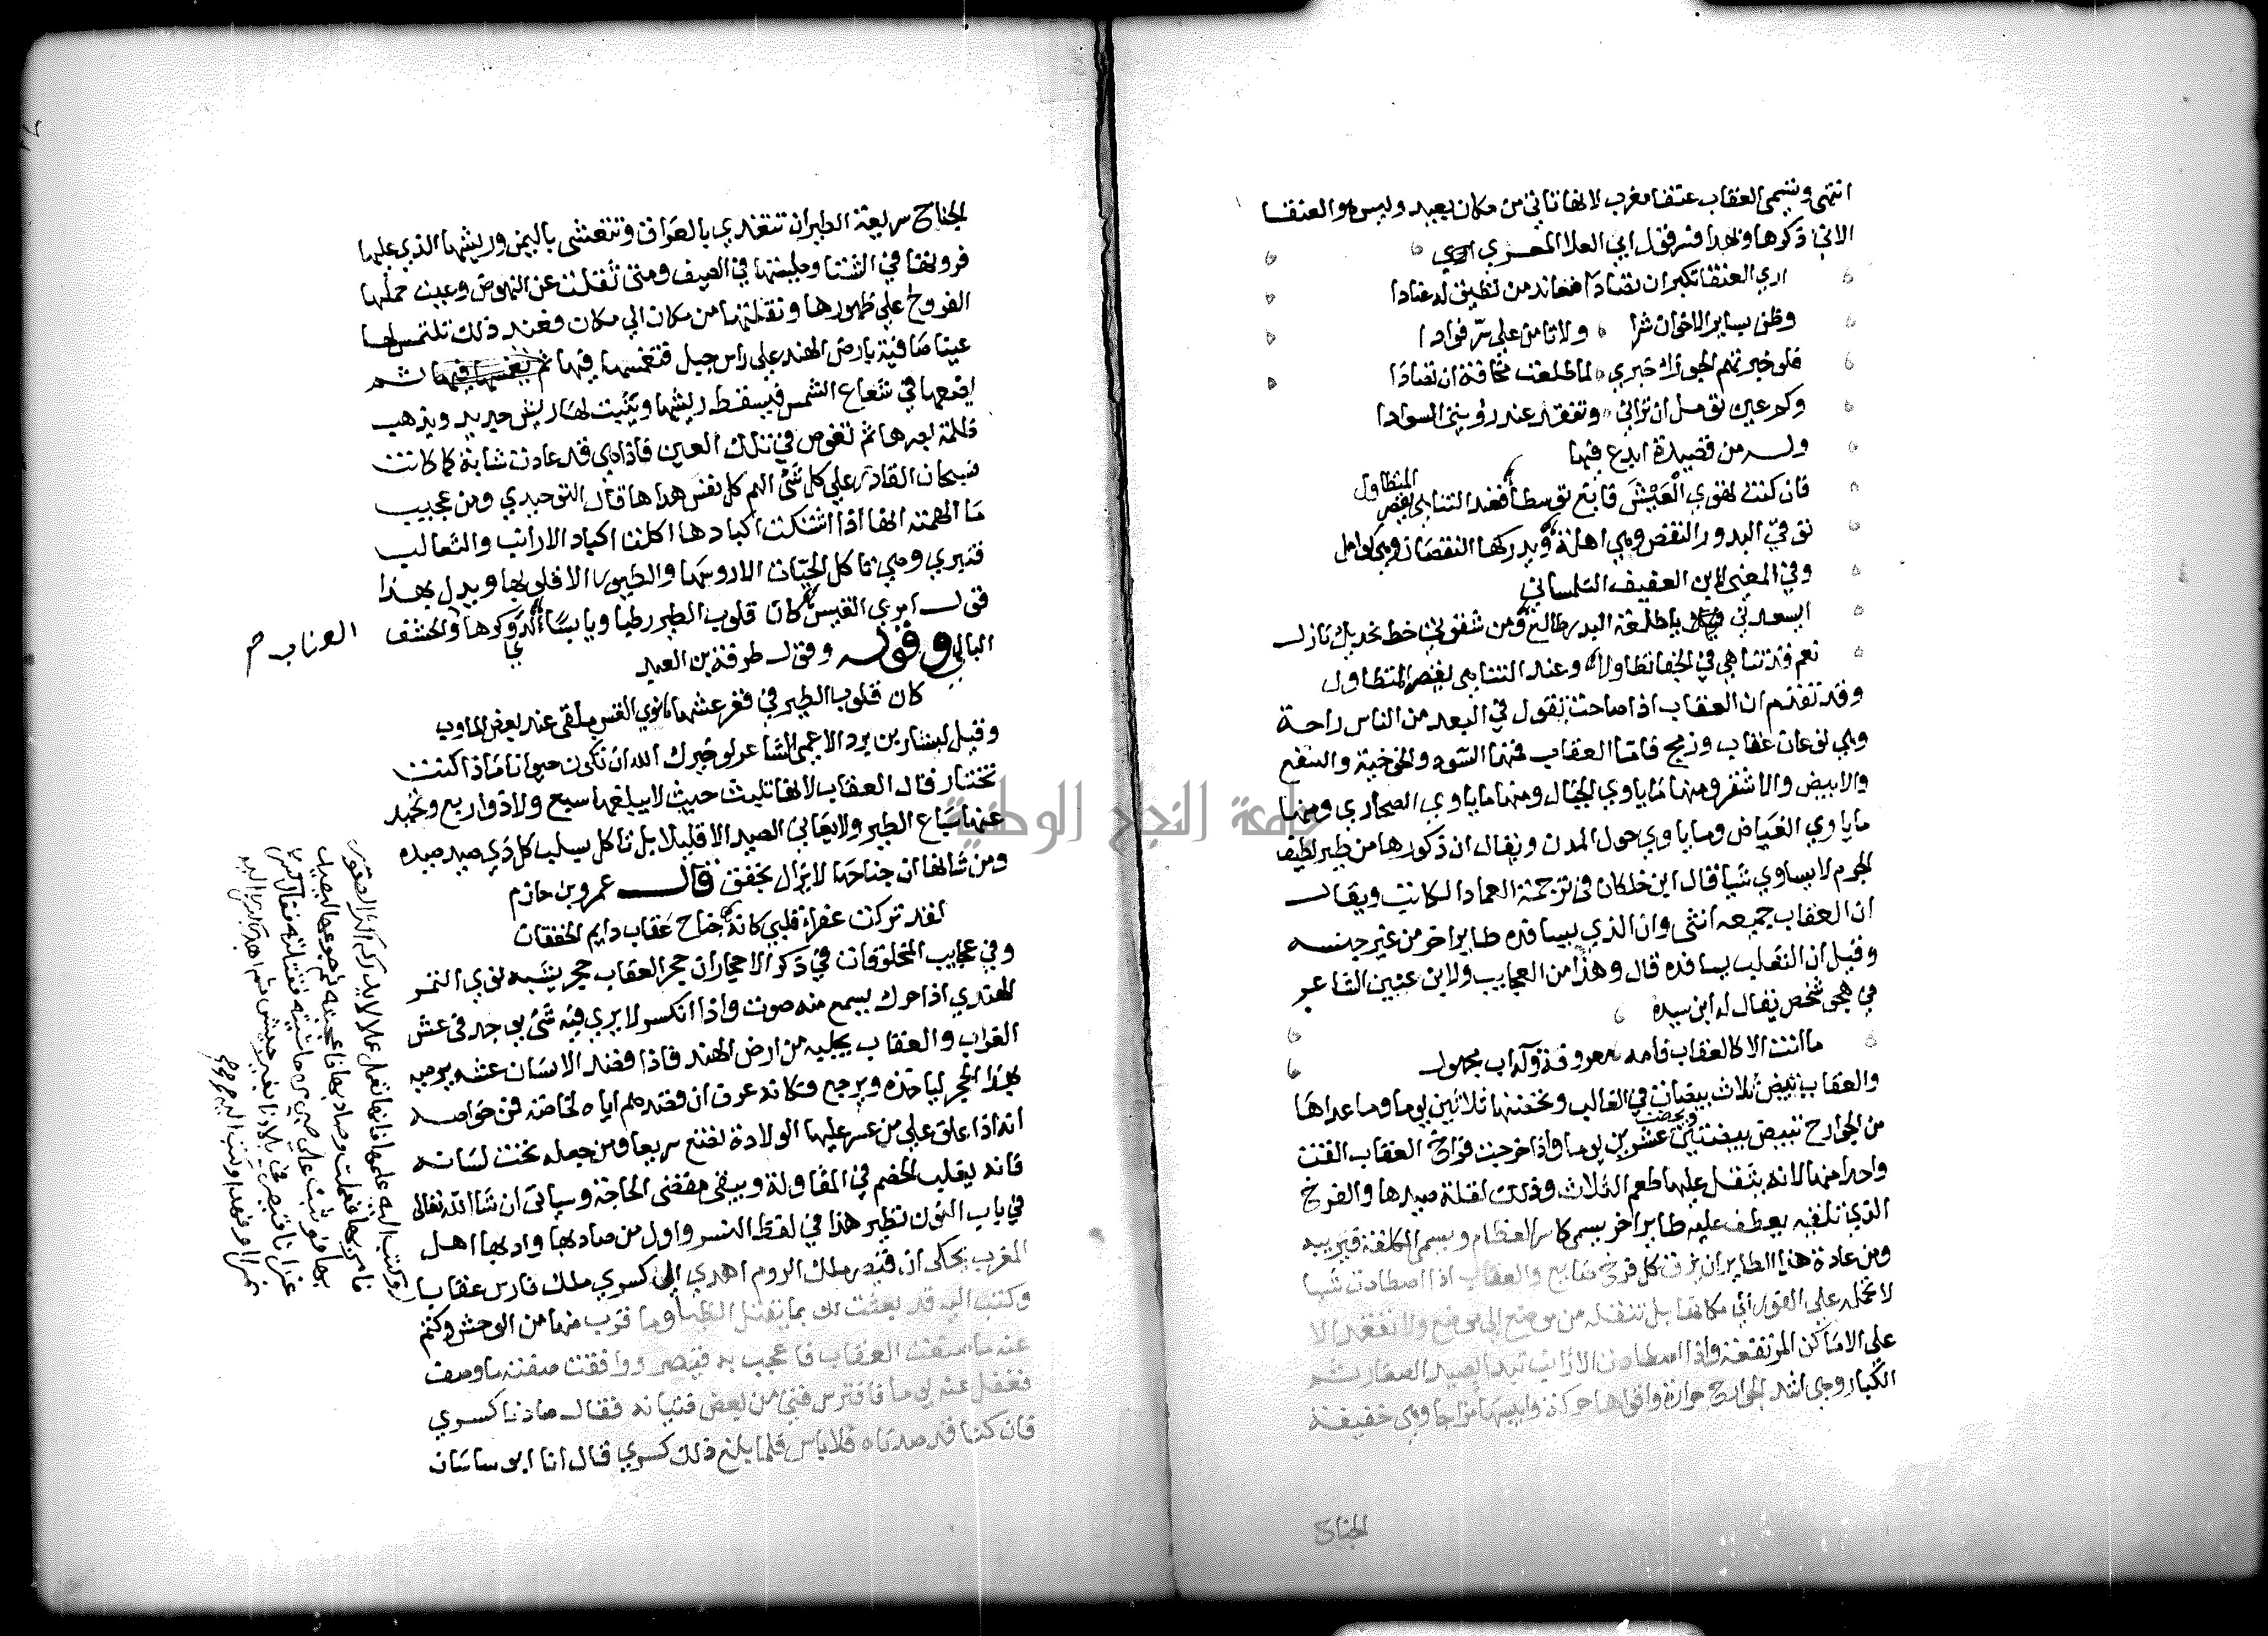 انتهى وتسمى العقاب عنقا مغرب لانها تاتي من مكان بعيد وليس هو العنقا
الاتي ذكرها وبهذا فسر قول ابي العلا المعري
اري العنقا تكبر ان تصادا فعاند من تطيق له عنادا
وظن بساير الاخوان شرا ولا تامن على سر فوادا
فلو خبرتهم الجوزاء خبري لما طلعت مخافة ان تصادا
وكم عين تومل ان تراني وتفقد عند رؤيتي السوادا
وله من قصيدة ابدع فيها
فان كنت تهوي العيش فابغ توسطا فعند التناهي يقصر المتطاول
توقي البدور النقص وهي اهلة ويدركها النقصان وهي كوامل
وفي المعنى لابن العفيف التلمساني
ايسعدني يا طلعة البدر طالع ومن شقوتي خط بخديك نازل
نعم قد تناهي في الجفا تطاولا وعند التناهي يقصر المتطاول
وقد تقدم ان العقاب اذا صاحت تقول في البعد من الناس راحة
وهي نوعان عقاب وزمج فاما العقاب فمنها السود والخوخية والسفع
والابيض والاشقر ومنها ما ياوي الجبال ومنها ما ياوي الصحاري ومنها
ما ياوي الغياض وما ياوي حول المدن ويقال ان ذكورها من طير لطيف
الجرم لا يساوي شيا قال ابن خلكان في ترجمة العماد الكاتب ويقال
ان العقاب جميعه انثى وان الذي يسافده طاير اخر من غير جنسه
وقيل ان الثعلب يسافده قال وهذا من العجايب ولابن عنين الشاعر
في هجو شخص يقال له ابن سيده
ما انت الا كالعقاب فامه معروفة وله اب مجهول
والعقاب تبيض ثلاث بيضات في الغالب وتحضنها ثلاثين يوما وما عداها
من الجوارح تبيض بيضتين وتحضن عشرين يوما واذا خرجت فراخ العقاب القت
واحدا منها لانه يثقل عليها طعم الثلاث وذلك لقلة صبرها والفرخ
الذي تلقيه يعطف عليه طاير اخر يسمى كاسر العظام ويسمى المكلفة فيربيه
ومن عادة هذا الطاير ان يزق كل فرخ ضايع والعقاب اذا اصطادت شيا
لا تحمله على الفور الى مكانها بل تنقله من موضع الى موضع ولا تقعد الا
على الاماكن المرتفعة واذا اصطادت الارانب تبدا بصيد الصغار ثم
الكبار وهي اشد الجوارح حرارة واقواها حركة وايبسها مزاجا وهي خفيفة
الجناح
الجناح سريعة الطيران تتغدي بالعراق وتتعشى باليمن وريشها الذي عليها
فروتها في الشتا وحليتها في الصيف ومتى ثقلت عن النهوض وعميت حملتها
الفروخ على ظهورها ونقلتها من مكان الي مكان فعند ذلك تلتمس لها
عينا صافية بارض الهند على راس جبل فتغمسها فيها ثم
يضعها في شعاع الشمس فيسقط ريشها وينبت لها ريش جديد ويذهب
ظلمة بصرها ثم تغوص في تلك العين فاذا هي قد عادت شابة كما كانت
فسبحان القادر على كل شئ الملهم كل نفس هداها قال التوحيدي ومن عجيب
ما الهمته انها اذا اشتكت اكبادها اكلت اكباد الارانب والثعالب
فتبري وهي تاكل الحيات الا روسها والطيور الا قلوبها ويدل بهذا
قول امري القيس كان قلوب الطير رطبا ويابسا لدي وكرها والحشف
العناب
البالي وقول طرفة بن العبد
كان قلوب الطير في قعر عشها نوي القسب ملقى عند بعض المادب
وقيل لبشار بن برد الاعمى الشاعر لو خيرك الله ان تكون حيوانا ماذا كنت
تختار قال العقاب لانها تلبث حيث لا يبلغها سبع ولا ذو اربع وتحيد
عنها سباع الطير ولا يعاني الصيد الا قليلا بل تاكل بسلب كل ذي صيد صيده
ومن شانها ان جناحها لا يزال يخفق قال عمرو بن حازم
لقد تركت عفراء قلبي كانه جناح عقاب دايم الخفقان
وفي عجايب المخلوقات في ذكر الاحجار ان حجر العقاب حجر يشبه نوي التمر
الهندي اذا حرك يسمع منه صوت واذا انكسر لا يري فيه شئ يوجد في عش
الغراب والعقاب يجلبه من ارض الهند فاذا قصد الانسان عشه يرميه
بهذا الحجر لياخذه ويرجع فكانه عرف ان قصدهم اياه لخاصته فمن خواصه
انه اذا علق على من عسر عليها الولادة تضع سريعا ومن جعله تحت لسانه
فانه يغلب الخصم في المقاولة ويبقى مقضي الحاجة وسياتي ان شا الله تعالى
في باب النون نظير هذا في لفظ النسر واول من صاد بها وادبها اهل
المغرب يحكى ان قيصر ملك الروم اهدي الى كسري ملك فارس عقابا
وكتب اليه قد بعثت لك بما يقتل الظبا وما قرب منها من الوحش وكتم
عنه ما صنعت العقاب فاعجب به قيصر ووافقت صفته ما وصف
فغفل عنه يوما فافترس فتى من بعض فتيانه فقال صادنا كسري
فان كنا قد صدناه فلا باس فلما بلغ ذلك كسري قال انا ابو ساسان